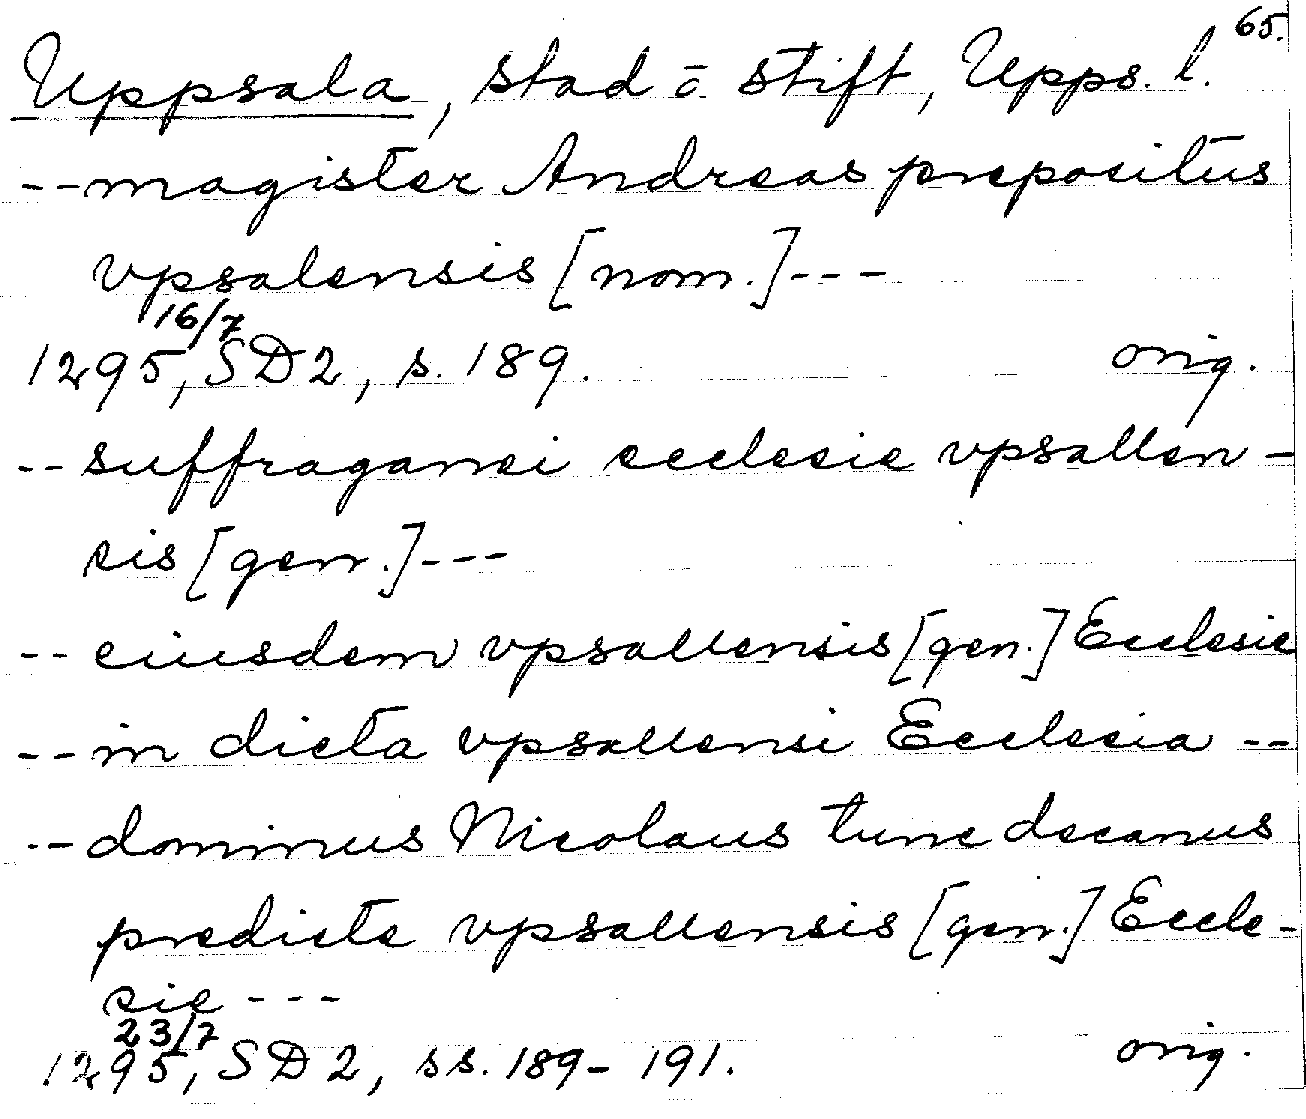 65.
Uppsala, stad o. stift, Upps. l.
--magister Andreas prepositus
vpsalensis [nom.]---
16/7
1295, SD2, s. 189. orig.
--suffraganei ecclesie vpsallen-
sis [gen.]---
--eiusdem vpsallensis [gen.] Ecclesie
--in dicta vpsallensi Ecclesia --
--dominus Nicolaus tunc decanus
predicte vpsallensis [gen.] Eccle-
sie ---
23/7
1295, SD2, ss. 189-191. orig.